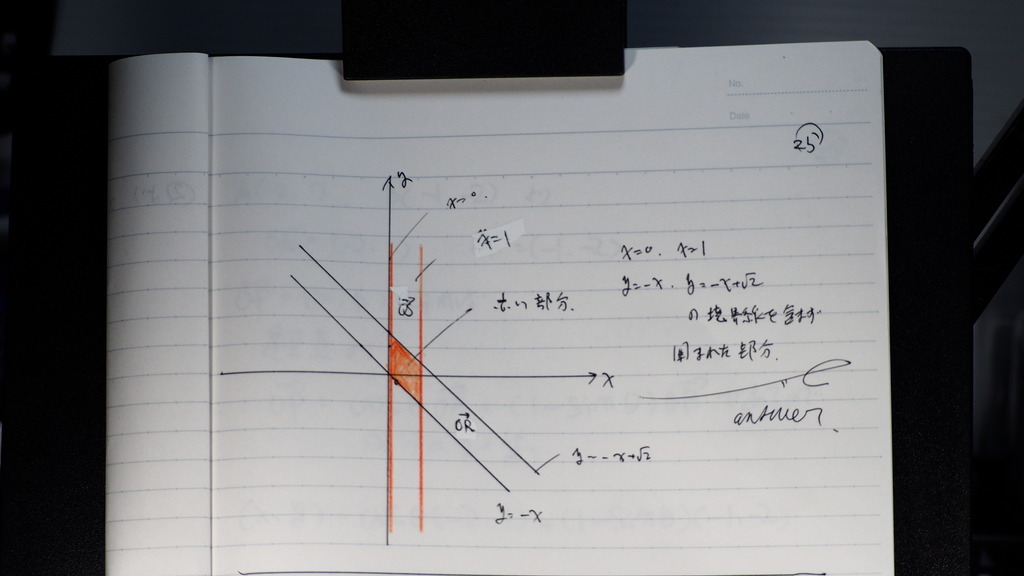 No.
Date
25
y
x=0.
x=1
赤い部分.
x=0. x=1
y=-x. y=-x+√2
の境界線を含まず
囲まれた部分.
answer.
x
y=-x+√2
y=-x